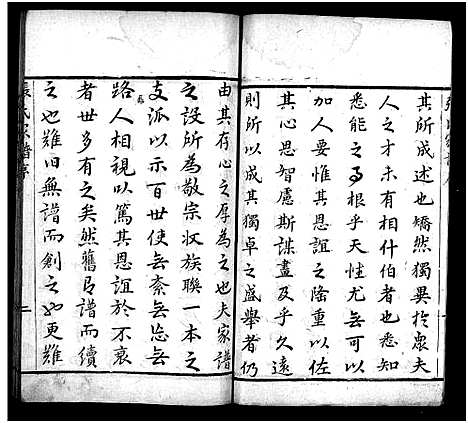 其所成述也矯然獨異於眾夫
人之才未有相什伯者也悉知
悉能之了根乎天性尤無可以
加人要惟其恩誼之隆重以佐
其心思智慮斯謀畫及乎久遠
則所以成其獨卓之盛舉者仍
由其存心之厚為之也夫家譜
之設所為敬宗收族聯一本之
支派以示百世使無紊無忘無
路人相視以篤其恩誼於不衰
者世多有之矣然舊有譜而續
之也難旧無譜而創之也更難
張氏家譜序
二